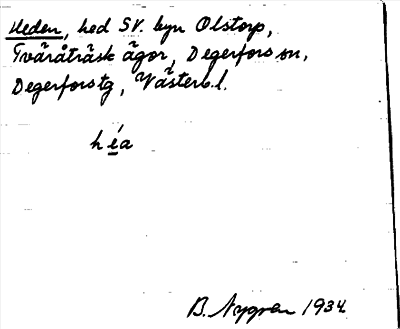 Heden, hed SV. byn Olstorp,
Tväråträsk ägor, Degerfors sn,
Degerforstg, Västerb.l.
héa
B. Nygren 1934